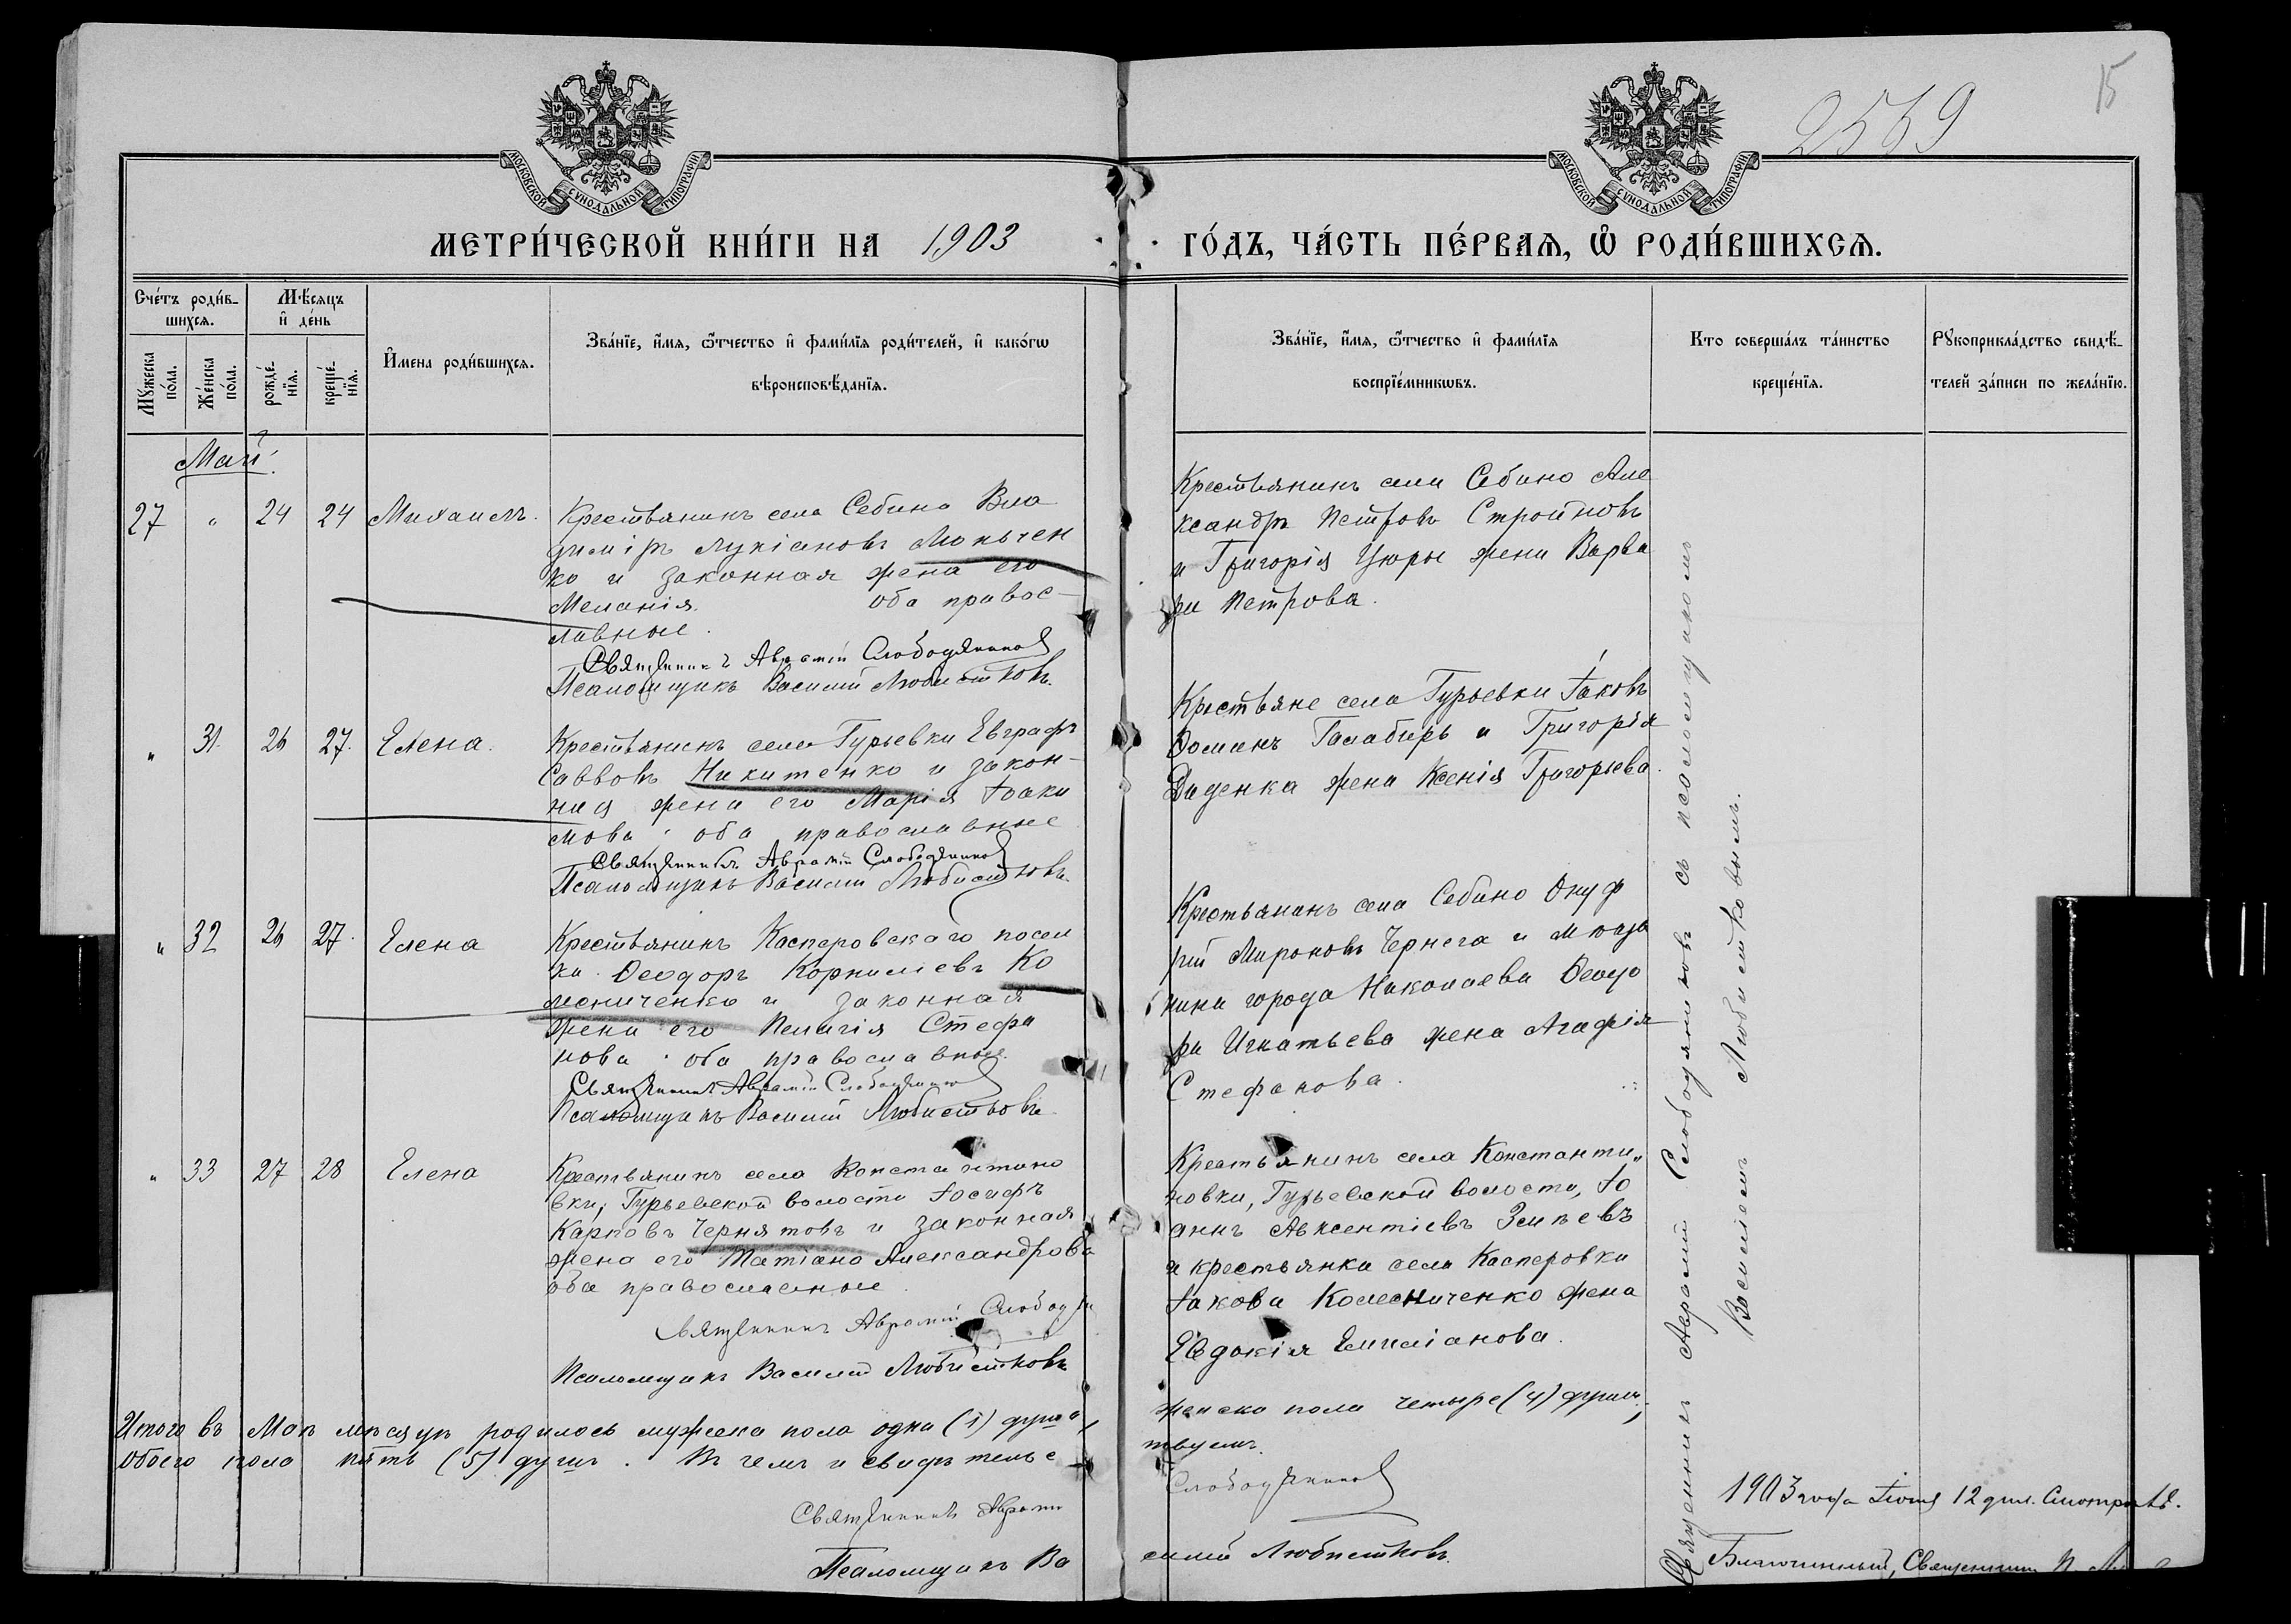 2559
15
МОСКОВСКОЙ СѴНОДАЛЬНОЙ ТИПОГРАФІИ
МОСКОВСКОЙ СѴНОДАЛЬНОЙ ТИПОГРАФІИ
МЕТРИ́ЧЕСКОЙ КНИ́ГИ НА 1903
ГО́ДЪ, ЧА́СТЬ ПЕ́РВАЯ, Ѽ РОДИ́ВШИХСЯ.
Сче́тъ роди́в-
шихся.
Мѣ́сяцъ
и҆ де́нь
Мꙋ́жеска
по́ла.
Же́нска
по́ла.
рожде́-
нїя.
креще́-
нїя.
И҆мена роди́вшихся.
Зва́нїе, и҆́мя, ѻ҆́тчество и҆ фами́лїя роди́телей, и҆ како́гѡ
вѣроисповѣ́данїя.
Зва́нїе, и҆́мя, ѻ҆́тчество и҆ фами́лїя
воспрїе́мникѡвъ.
Кто соверша́лъ та́инство
креще́нїя.
Рꙋкоприкла́дство свидѣ́-
телей за́писи по жела́нїю.
Май.
27 " 24 24 Михаилъ.
Крестьянинъ села Себино Вла
димiръ Лукiановъ Мокычен
ко и законная жена его
Меланiя. Оба правос-
лавные.
Священникъ Аврамiй Слободяников
Псаломщикъ Василий Любистковъ.
Крестьянинъ села Себино Але
ксандръ Петровъ Стройновъ
и Григорiя Цюры жена Варва
ра Петрова.
" 31. 26 27. Елена.
Крестьянинъ села Гурьевки Евграфъ
Саввовъ Никитенко и закон-
ная жена его Марiя Iоаки
мова. оба православные
Священникъ Аврамiй Слободяников
Псаломщикъ Василий Любистковъ.
Крестьяне села Гурьевки Iаковъ
Ѳоминъ Галабирь и Григорiя
Диденка жена Ксенiя Григорьева.
" 32 26 27. Елена
Крестьянинъ Касперовскаго посел
ка Ѳеодоръ Корнилiевъ Ко
лесниченко и законная
жена его Пелагiя Стефа
нова. оба православные.
Священникъ Аврамiй Слободяников
Псаломщикъ Василий Любистковъ.
Крестьянинъ села Себино Онуф
рiй Мироновъ Чернега и мѣща
нина города Николаева Ѳеодо
ра Игнатьева жена Агафiя
Стефанова.
" 33 27 28 Елена
Крестьянинъ села Константино
вки, Гурьевской волости Iосифъ
Карповъ Чернятовъ и законная
жена его Татiана Александрова
оба православные.
Священникъ Аврамiй Слободян
Псаломщикъ Василий Любистковъ
Крестьянинъ села Константи„
новки, Гурьевской волости, Iо
аннъ Авксентiевъ
и крестьянка села Касперовки
Iакова Колесниченко жена
Евдокiя Емилiанова.
Священникъ Аврамiй Слободяниковъ съ псаломщикомъ
Василiемъ Любистковымъ.
Итого въ Маѣ мѣсяцѣ родилось мужеска пола одна (1) душа,
женска пола четыре (4) души,
обоего пола пять (5) душъ. Въ чемъ и свидѣтельс
твуемъ.
Священникъ Аврамiй
Слободяников
Псаломщикъ Ва
силий Любистковъ.
1903 года Iюня 12 дня. Смотрѣлъ.
Благочинный, Священникъ